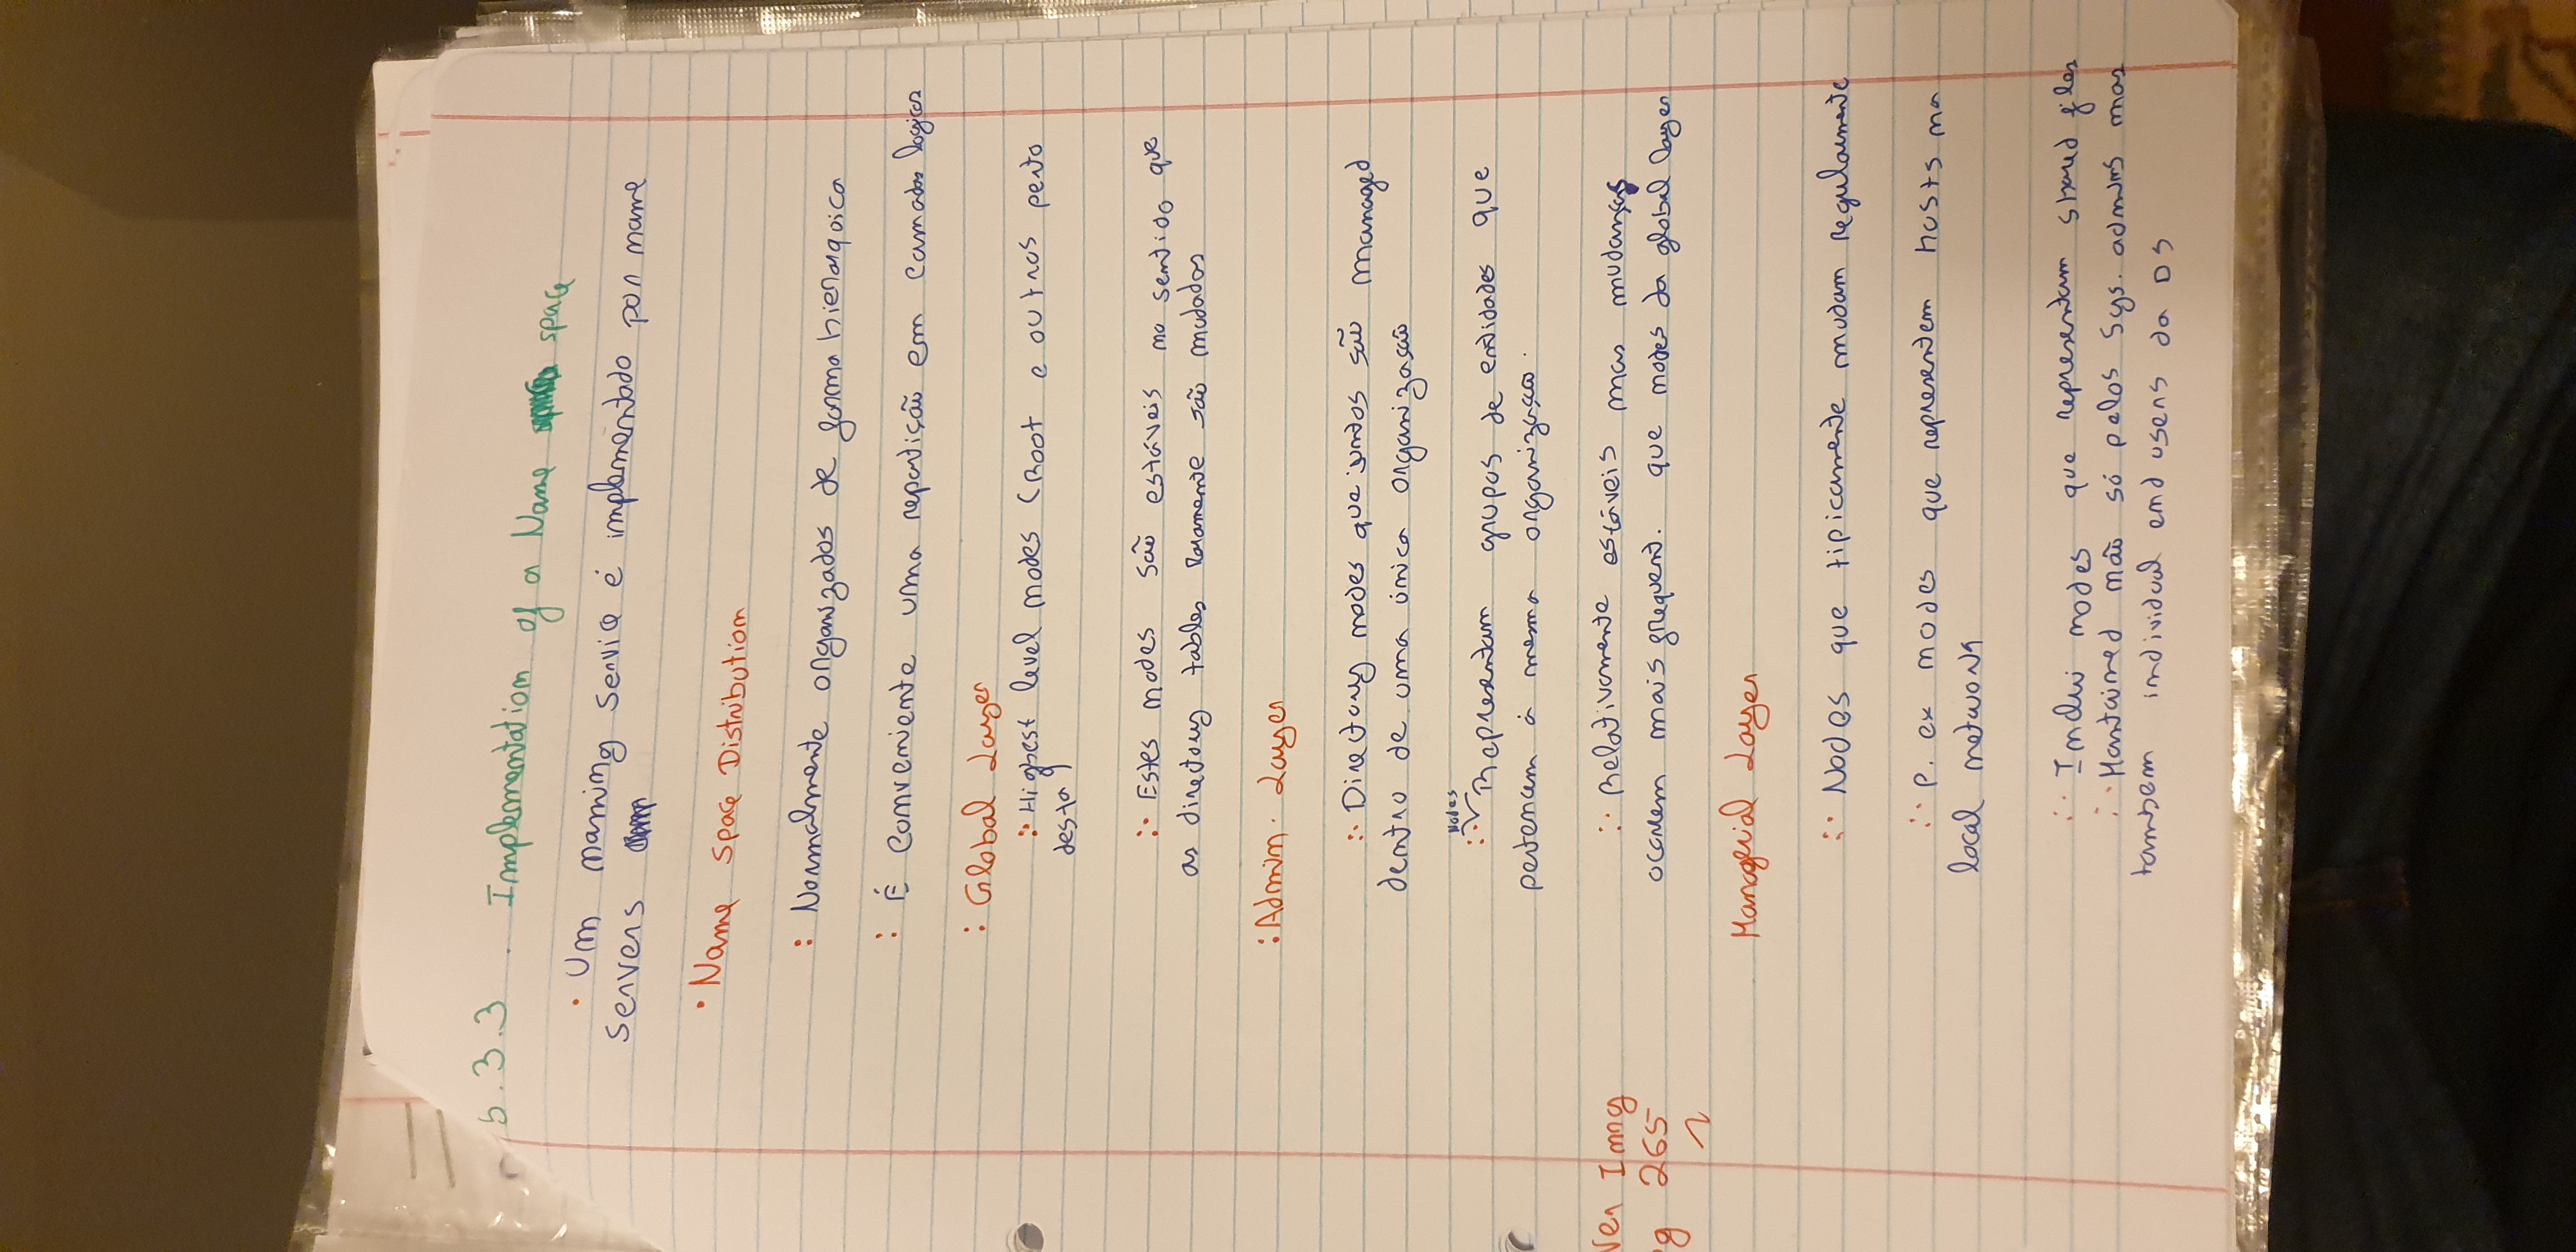 5.3.3. Implementation of a Name space
• Um naming service é implementado por name
servers
• Name Space Distribution
: Normalmente organizados de forma hierarquica
: É conveniente uma repartição em camadas logicas
: Global Layer
∴ Highest level nodes (Root e outros perto
desta)
∴ Estes nodes são estáveis no sentido que
as directory tables Raramente são mudadas
: Admin. Layer
∴ Directory nodes que juntos são managed
dentro de uma única organização
Nodes
∴ Representam grupos de entidades que
pertencem à mesma organização.
∴ Relativamente estáveis mas mudanças
Ver Imag
g 265
ocorrem mais frequent. que nodes da global layer
Managerial Layer
∴ Nodes que tipicamente mudam regularmente
∴ P. ex nodes que representem hosts na
local network
∴ Inclui nodes que representam shared files
∴ Mantained não só pelos Sys. admins mas
tambem individual end users da DS